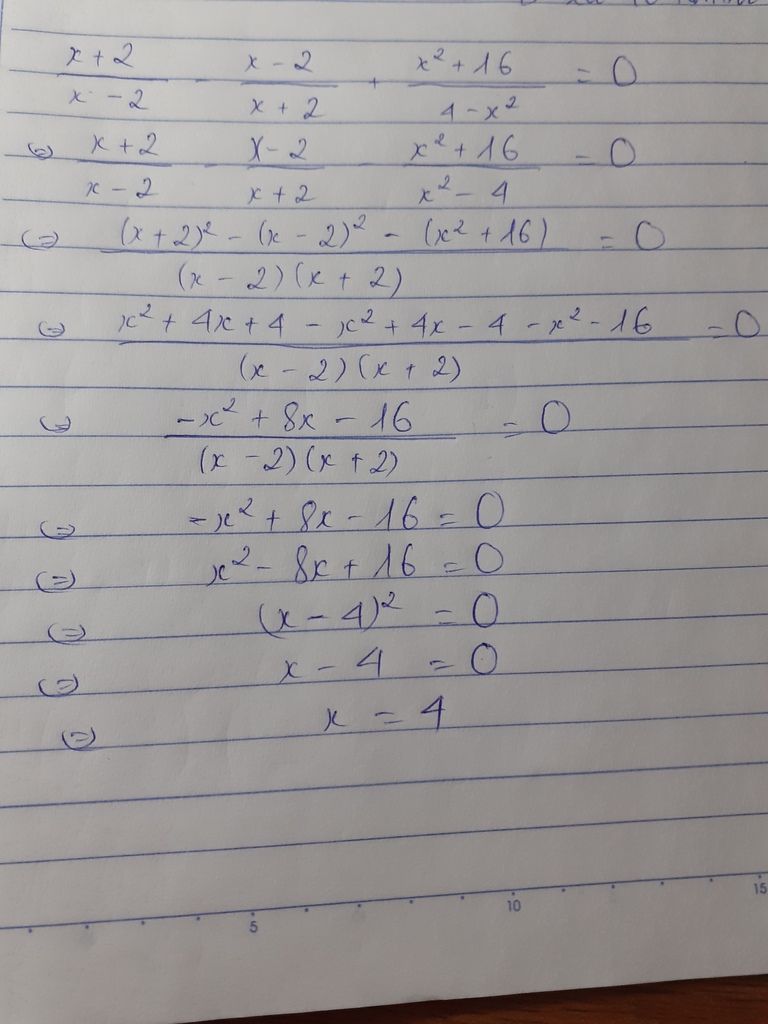 x + 2 / x - 2 - x - 2 / x + 2 + x² + 16 / 4 - x² = 0
(=) x + 2 / x - 2 - x - 2 / x + 2 - x² + 16 / x² - 4 = 0
(=) (x + 2)² - (x - 2)² - (x² + 16) / (x - 2)(x + 2) = 0
(=) x² + 4x + 4 - x² + 4x - 4 - x² - 16 / (x - 2)(x + 2) = 0
(=) -x² + 8x - 16 / (x - 2)(x + 2) = 0
(=) -x² + 8x - 16 = 0
(=) x² - 8x + 16 = 0
(=) (x - 4)² = 0
(=) x - 4 = 0
(=) x = 4
5 10 15